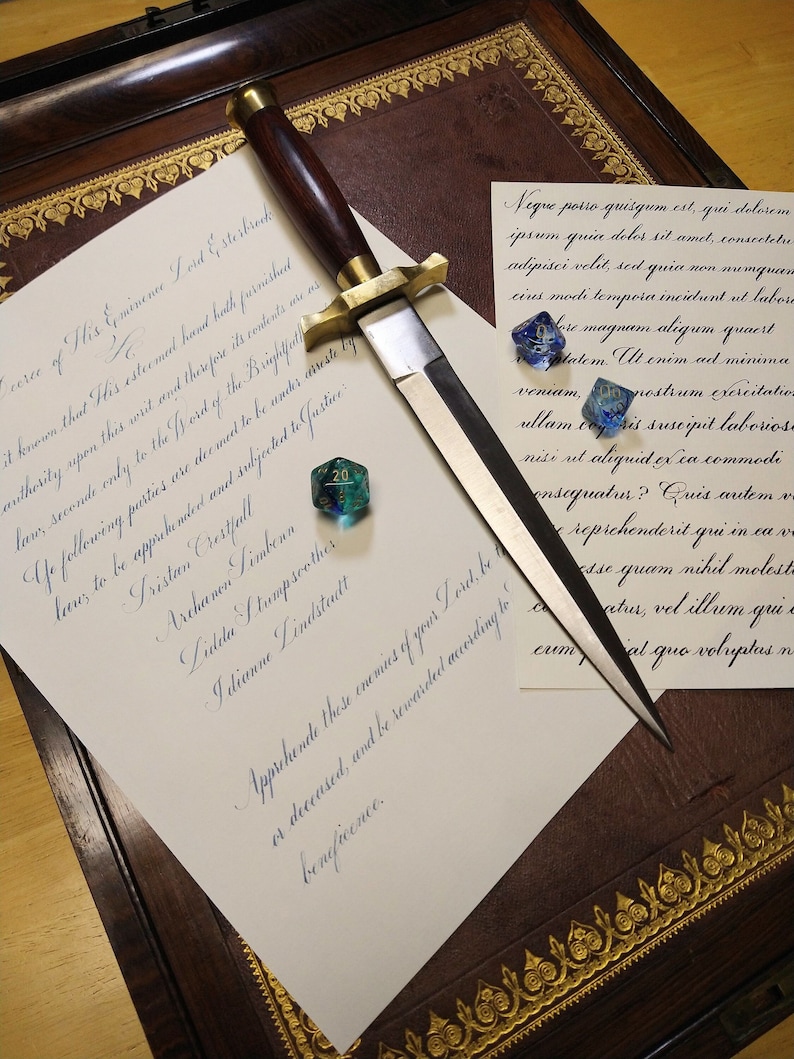 Decree of His Eminence Lord Esterbrook
it known that His esteemed hand hath furnished
authority upon this writ and therefore its contents are as
law, seconde only to the Word of the Brightfath
Ye following parties are deemed to be under arreste by
law, to be apprehended and subjected to Justice:
Tristan Crestfall
Archanon Limbenn
Lidda Stumpsoother
Idianne Lindstadt
Apprehende these enemies of your Lord, be th
or deceased, and be rewarded according to
beneficence.
20
Neque porro quisqum est, qui dolorem
ipsum quia dolor sit amet, consectetu
adipisci velit, sed quia non numquam
eius modi tempora incidunt ut labor
ore magnam aliqum quaert
voluptatem. Ut enim ad minima
veniam, nostrum exercitatio
ullam corporis suscipit laborios
nisi ut aliquid ex ea commodi
onsequatur? Quis autem v
reprehenderit qui in ea vo
esse quam nihil molest
atur, vel illum qui
eum quo voluptas n
0
00